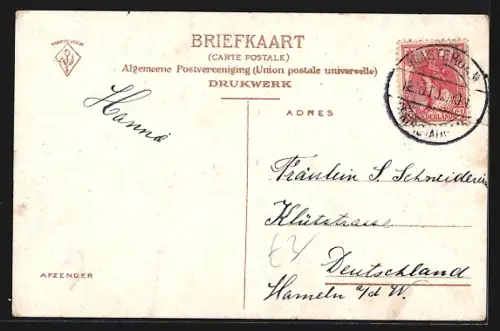 BRIEFKAART
(CARTE POSTALE)
Algemeene Postvereeniging (Union postale universelle)
DRUKWERK
Hanna
ADRES
Fräulein S. Schneider
Klütstrasse
Deutschland
Hameln a/d W.
AFZENDER
NEDERLAND